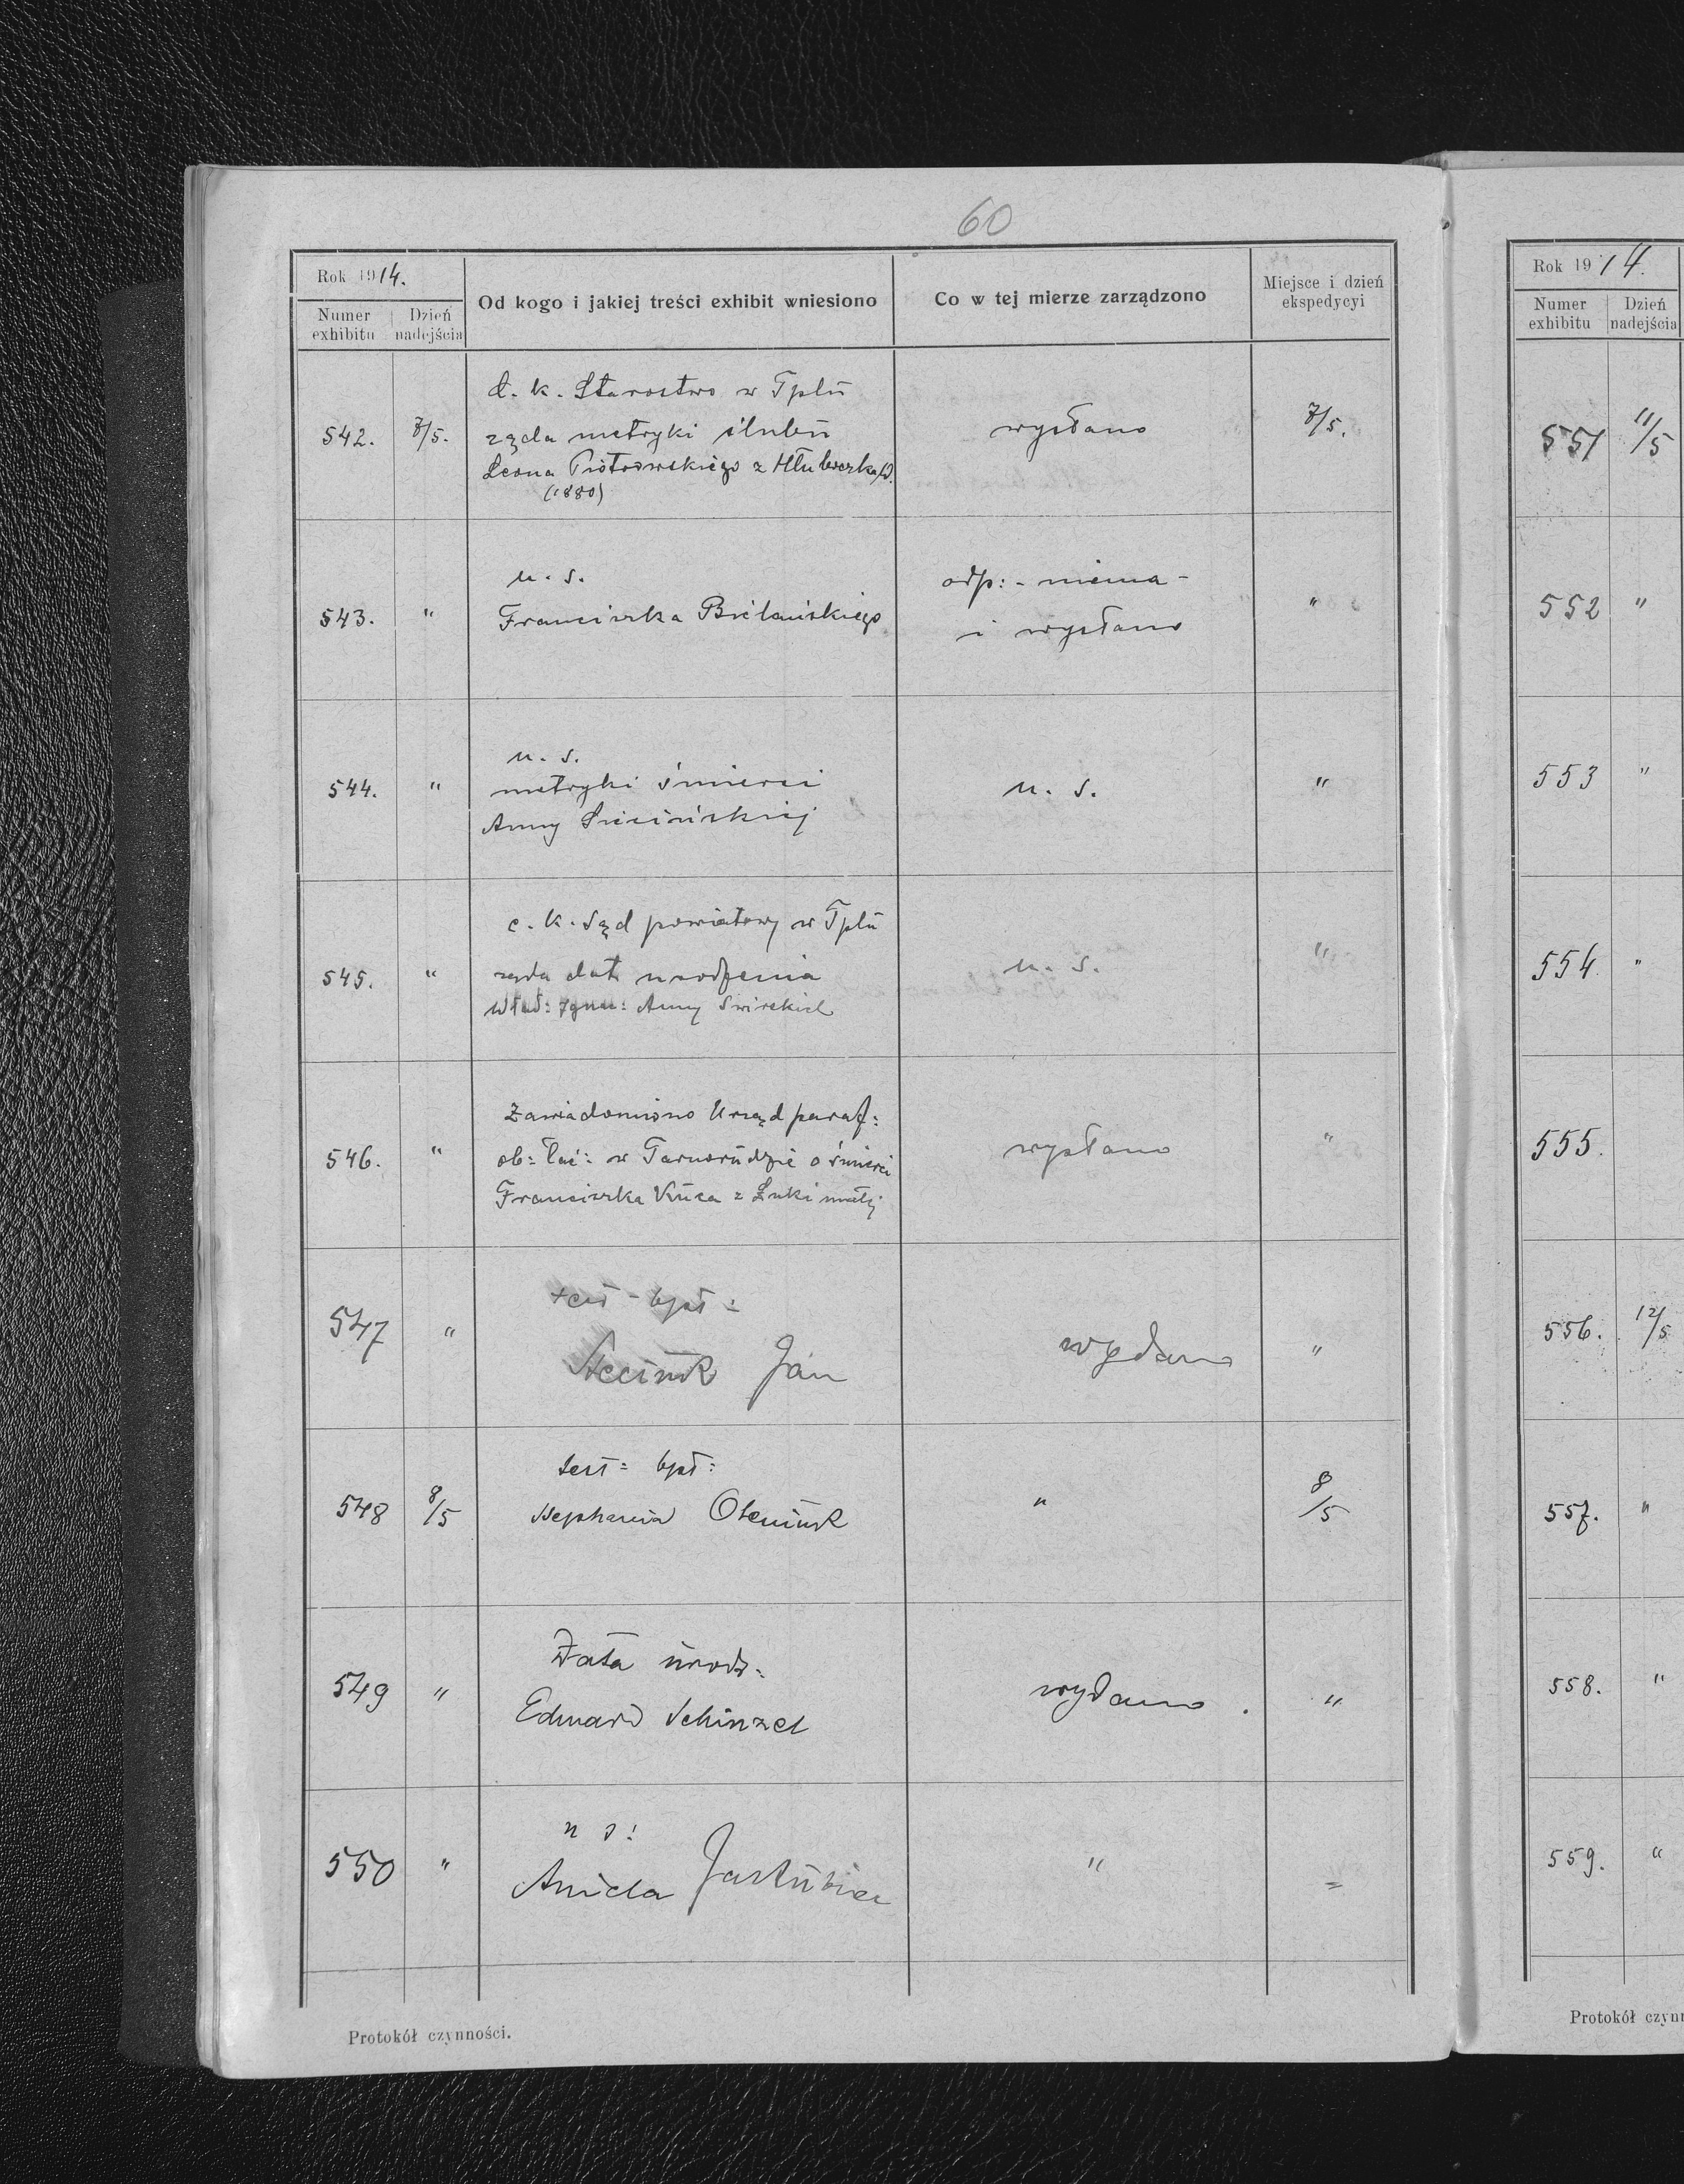 60
Rok 1914.
Numer exhibitu
Dzień nadejścia
Od kogo i jakiej treści exhibit wniesiono
Co w tej mierze zarządzono
Miejsce i dzień ekspedycyi
542. 7/5. c. k. Starostwo w Tplu wysłano 7/5.
żąda metryki ślubu
Leona Piotrowskiego z Hłuboczka W.
(1880)
543. " u. s. odp: - niema -
Franciszka Bielańskiego i wysłano "
544. " u. s.
metryki śmierci u. s. "
Anny
545. " c. k. Sąd powiatowy w Tplu u. s. "
żąda dat urodzenia
Wład: Zgm: Anny Świrskich
546. " Zawiadomiono Urząd paraf: wysłano "
ob: łać: w Tarnorudzie o śmierci
Franciszka Kuca z Łuki małej
547 " test - bpt: wydano "
Jan
548 8/5 test: bpt: " 8/5
Stephania Oleniuk
549 " Data urodz: wydano . "
Edward Schinzel
550 " u s: " "
Aniela
Protokół czynności.
Rok 1914.
Numer exhibitu
Dzień nadejścia
551 11/5
552 "
553 "
554 "
555.
556. 12/5
557. "
558. "
559. "
Protokół czynn